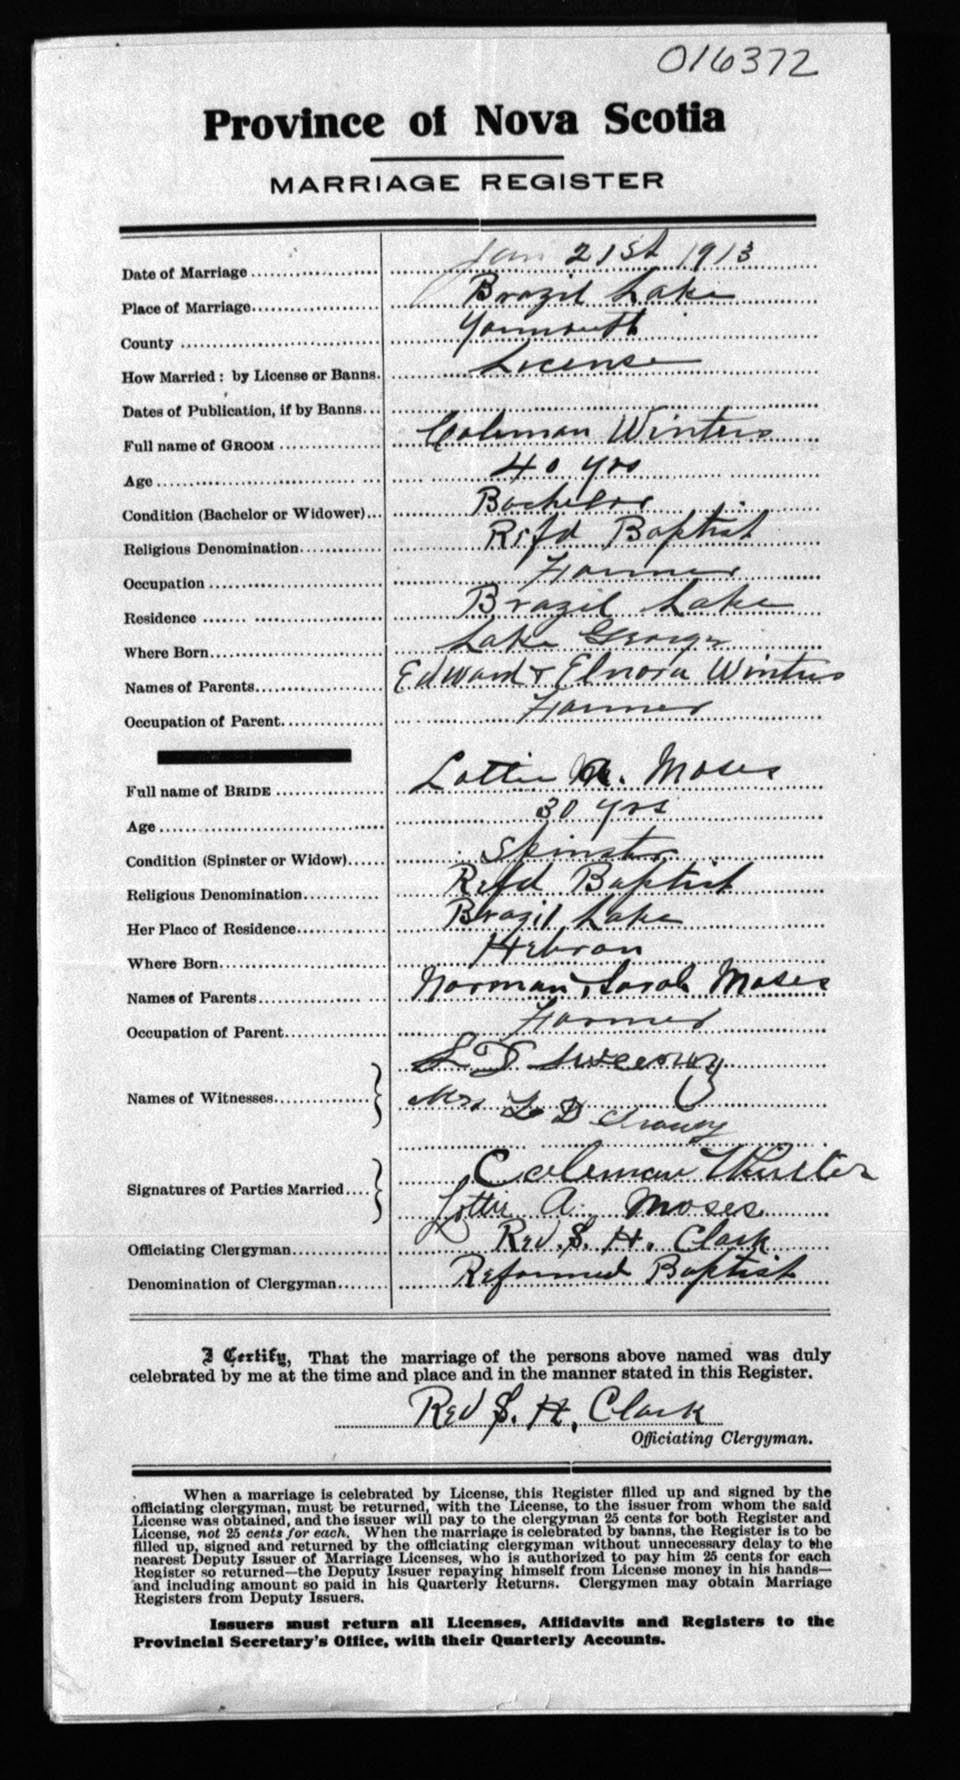 016372
Province of Nova Scotia
MARRIAGE REGISTER
Date of Marriage Jan 21st 1913
Place of Marriage Brazil Lake
County Yarmouth
How Married: by License or Banns. License
Dates of Publication, if by Banns
Full name of GROOM Coleman Winters
Age 40 yrs
Condition (Bachelor or Widower) Bachelor
Religious Denomination Refd Baptist
Occupation Farmer
Residence Brazil Lake
Where Born Lake George
Names of Parents Edward & Elnora Winters
Occupation of Parent Farmer
Full name of BRIDE Lottie A. Moses
Age 30 yrs
Condition (Spinster or Widow) Spinster
Religious Denomination Refd Baptist
Her Place of Residence Brazil Lake
Where Born Hebron
Names of Parents Norman & Sarah Moses
Occupation of Parent Farmer
Names of Witnesses L D Sweeney
Mrs L D
Signatures of Parties Married Coleman Winters
Lottie A. Moses
Officiating Clergyman Rev. S. H. Clark
Denomination of Clergyman Reformed Baptist
I Certify, That the marriage of the persons above named was duly
celebrated by me at the time and place and in the manner stated in this Register.
Rev S. H. Clark
Officiating Clergyman.
When a marriage is celebrated by License, this Register filled up and signed by the
officiating clergyman, must be returned, with the License, to the issuer from whom the said
License was obtained, and the issuer will pay to the clergyman 25 cents for both Register and
License, not 25 cents for each. When the marriage is celebrated by banns, the Register is to be
filled up, signed and returned by the officiating clergyman without unnecessary delay to the
nearest Deputy Issuer of Marriage Licenses, who is authorized to pay him 25 cents for each
Register so returned—the Deputy Issuer repaying himself from License money in his hands—
and including amount so paid in his Quarterly Returns. Clergymen may obtain Marriage
Registers from Deputy Issuers.
Issuers must return all Licenses, Affidavits and Registers to the
Provincial Secretary's Office, with their Quarterly Accounts.